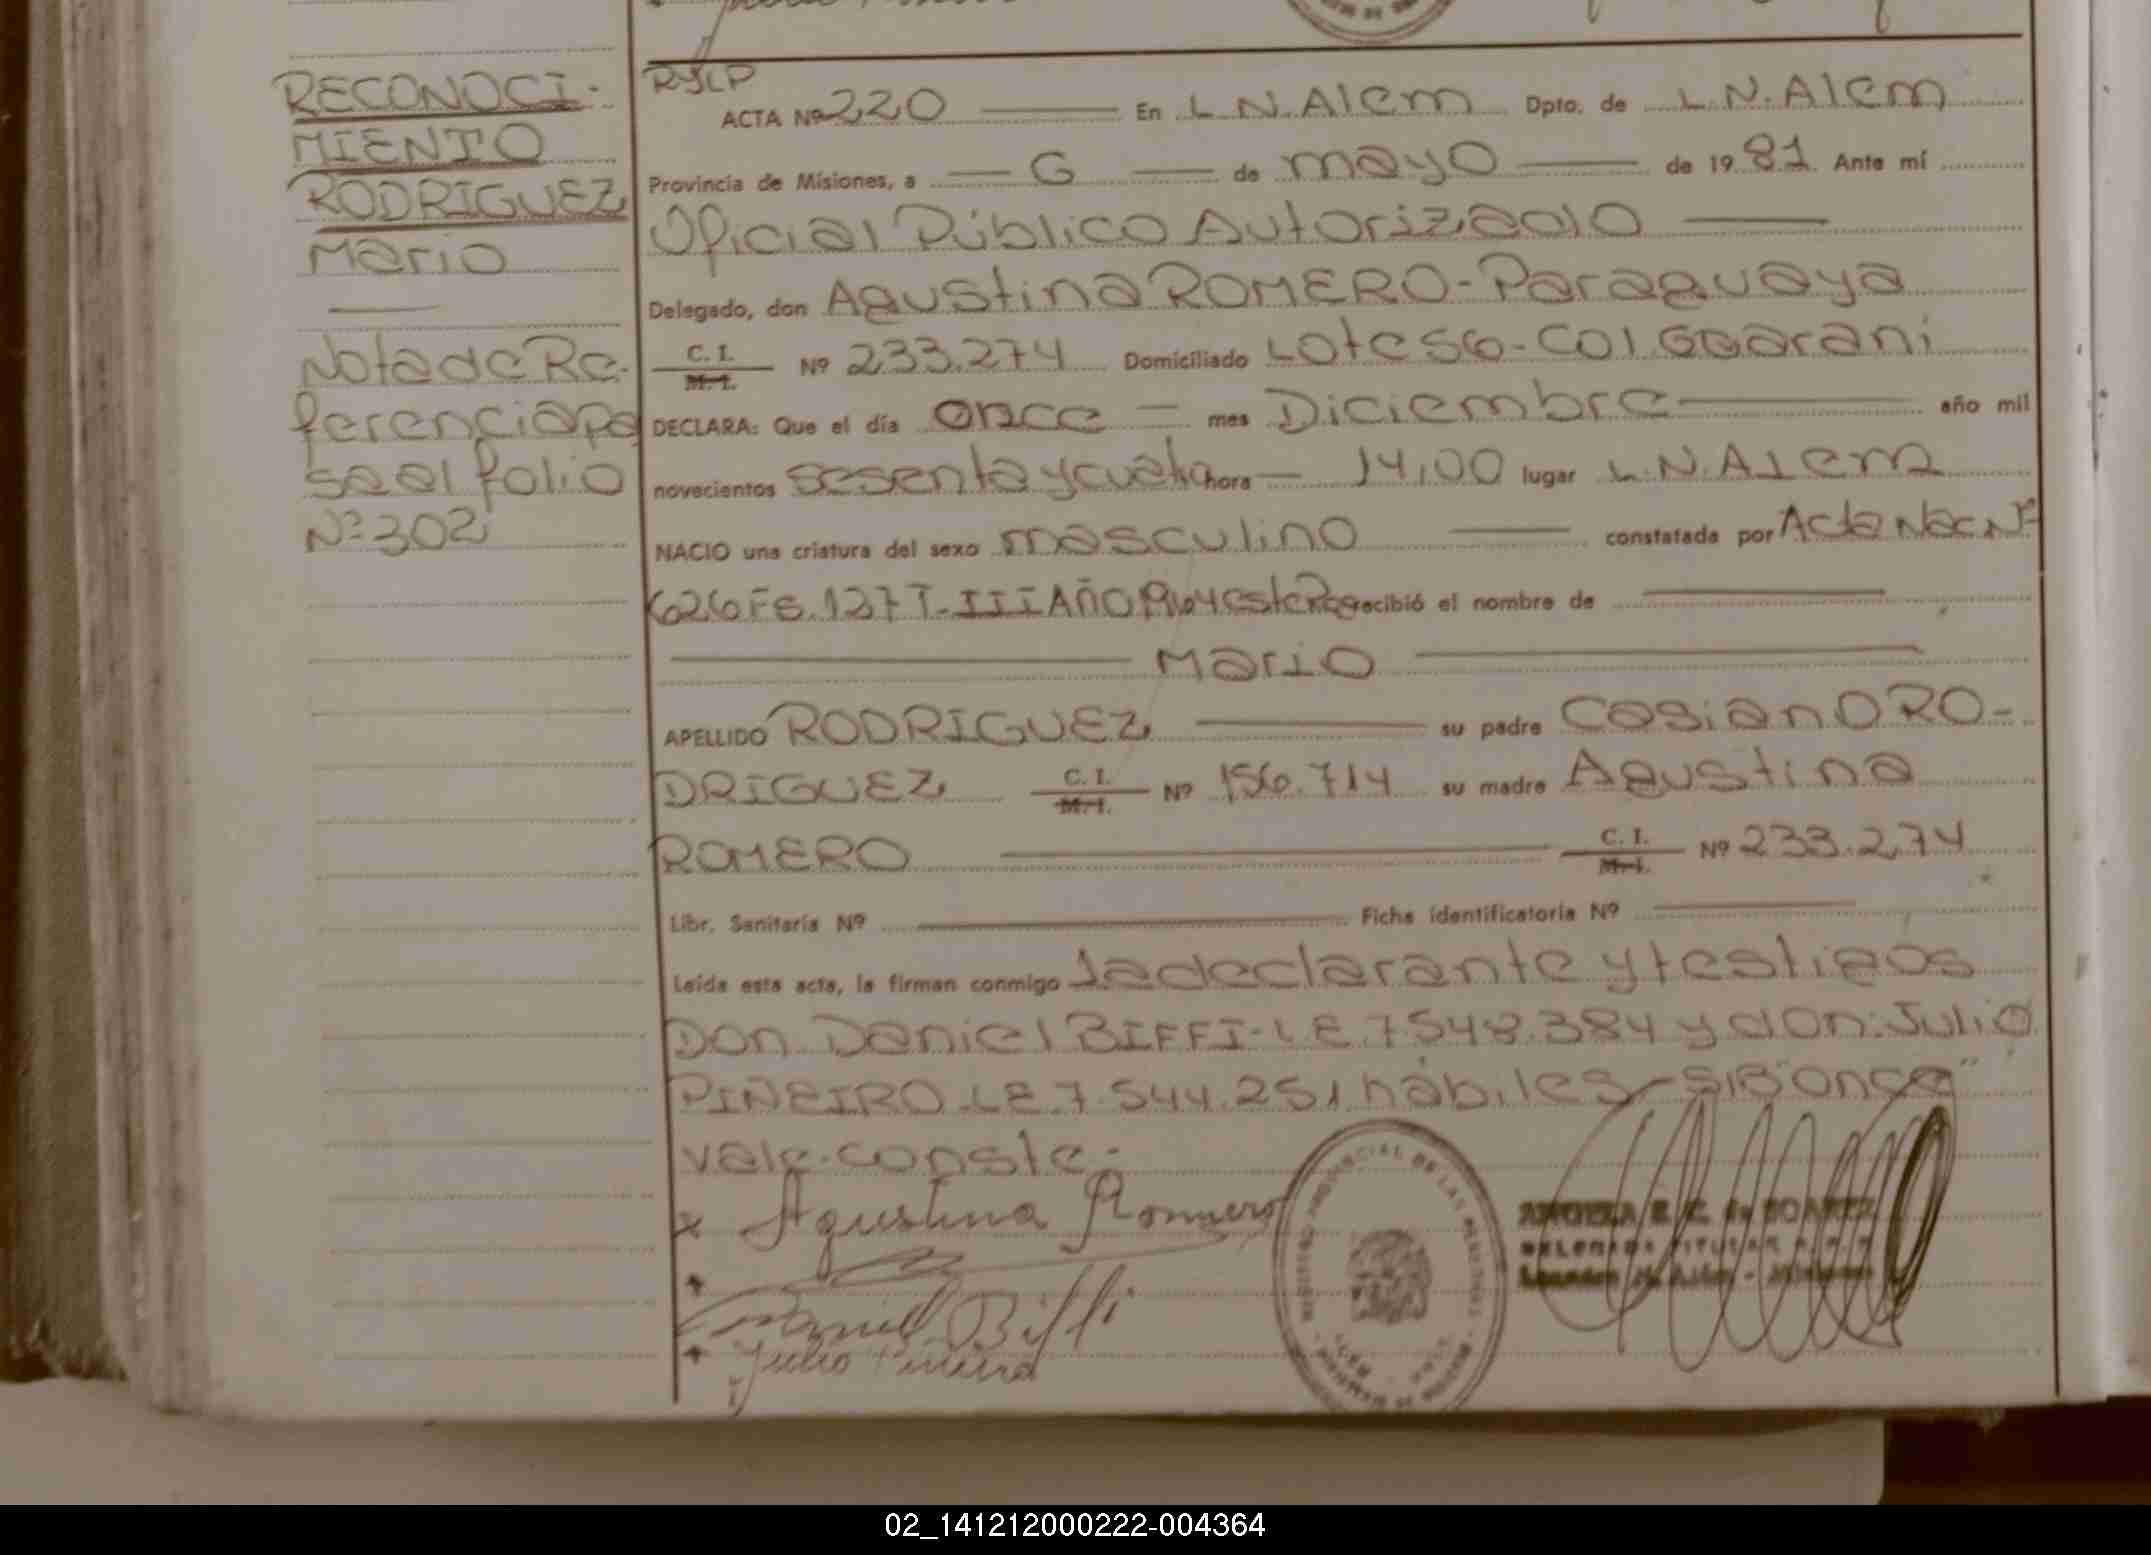 RECONOCI-
MIENTO
RODRIGUEZ
Mario
Nota de Re-
ferencia Pa
sa al folio
Nº 302
RYLP
ACTA Nº 220 En L N. Alem Dpto. de L. N. Alem
Provincia de Misiones, a 6 de mayo de 19 81 Ante mí
Oficial Público Autorizado
Delegado, don Agustina ROMERO - Paraguaya
C. I. M. I. Nº 233.274 Domiciliado Lote 56 - Col Guarani
DECLARA: Que el día once mes Diciembre año mil
novecientos sesenta y cuatro hora 14,00 lugar L. N. Alem
NACIO una criatura del sexo masculino constatada por Acta Nac Nº
626 Fs. 127 T- III AÑO 1964 este Reg recibió el nombre de
Mario
APELLIDO RODRIGUEZ su padre Casiano RO-
DRIGUEZ C. I. M. I. Nº 156.714 su madre Agustina
ROMERO C. I. M. I. Nº 233.274
Libr. Sanitaria Nº Ficha identificatoria Nº
Leída esta acta, la firman conmigo la declarante y testigos
Don Daniel BIFFI - L E. 7.548.384 y don: Julio
PIÑEIRO. L E. 7.544.251 hábiles - S/B "once"
vale. conste.-
x Agustina Romero
Daniel Biffi
Julio Piñeiro
REGISTRO PROVINCIAL DE LAS PERSONAS
ANGELA E. C. de SOAREZ
DELEGADA TITULAR R. P. P.
Leandro N. Alem - Misiones
02_141212000222-004364